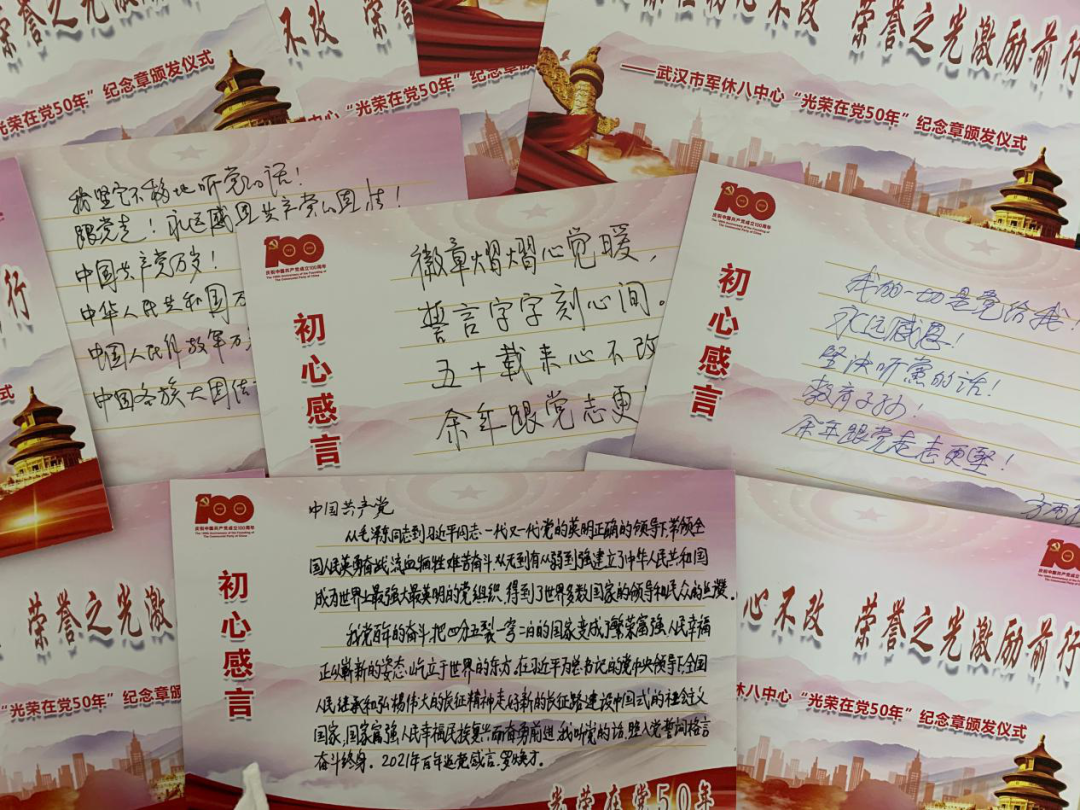 不改 荣誉之光激励前行
——武汉市军休八中心“光荣在党50年”纪念章颁发仪式
光荣在党50年”纪念章颁发仪式
不改 荣
中心“光荣在党50年”纪念章
我坚定不移地听党的话！
跟党走！永远感恩共产党的恩情！
中国共产党万岁！
中华人民共和国万
中国人民解放军万
中国各族大团结
100
庆祝中国共产党成立100周年
The 100th Anniversary of the Founding of
The Communist Party of China
初心感言
徽章熠熠心觉暖，
誓言字字刻心间。
五十载来心不改
余年跟党志更
100
庆祝中国共产党成立100周年
初心感言
我的一切是党给我！
永远感恩！
坚决听党的话！
教育子孙！
余年跟党走志更坚！
100
庆祝中国共产党成立100周年
The 100th Anniversary of the Founding of
The Communist Party of China
初心感言
中国共产党
从毛泽东同志到习近平同志一代又一代党的英明正确的领导下，带领全
国人民英勇奋战，流血牺牲艰苦奋斗，从无到有从弱到强建立了中华人民共和国
成为世界上最强大最英明的党组织，得到了世界多数国家的领导和民众的点赞。
我党百年的奋斗，把四分五裂一穷二白的国家变成了繁荣富强人民幸福
正以崭新的姿态屹立于世界的东方。在习近平为总书记的党中央领导下，全国
人民继承和弘扬伟大的长征精神走好新的长征路建设中国式的社会主义
国家，国家富强人民幸福民族复兴而奋勇前进，我听党的话，照入党誓词格言
奋斗终身。2021年百年返党感言。罗焕才。
光荣在党50年
荣誉之光激
“光荣在党50年”纪念章颁
心不改 荣誉之光激励前行
休八中心“光荣在党50年”纪念章颁发仪式
行
式
100